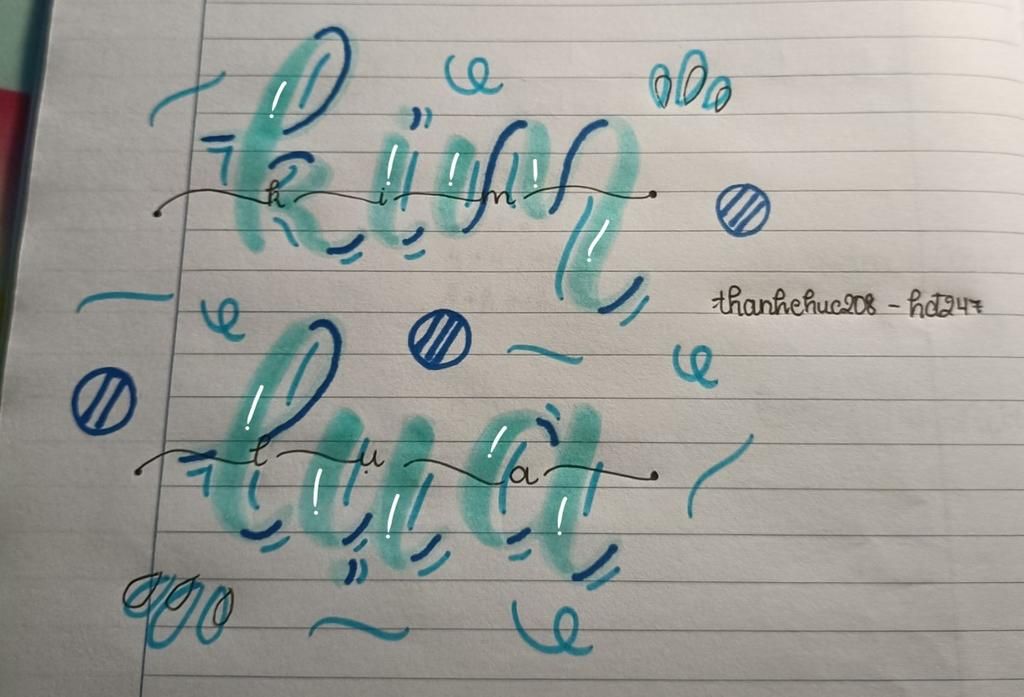 kim
kim
thanhchuc208 - hd247
lụa
lụa